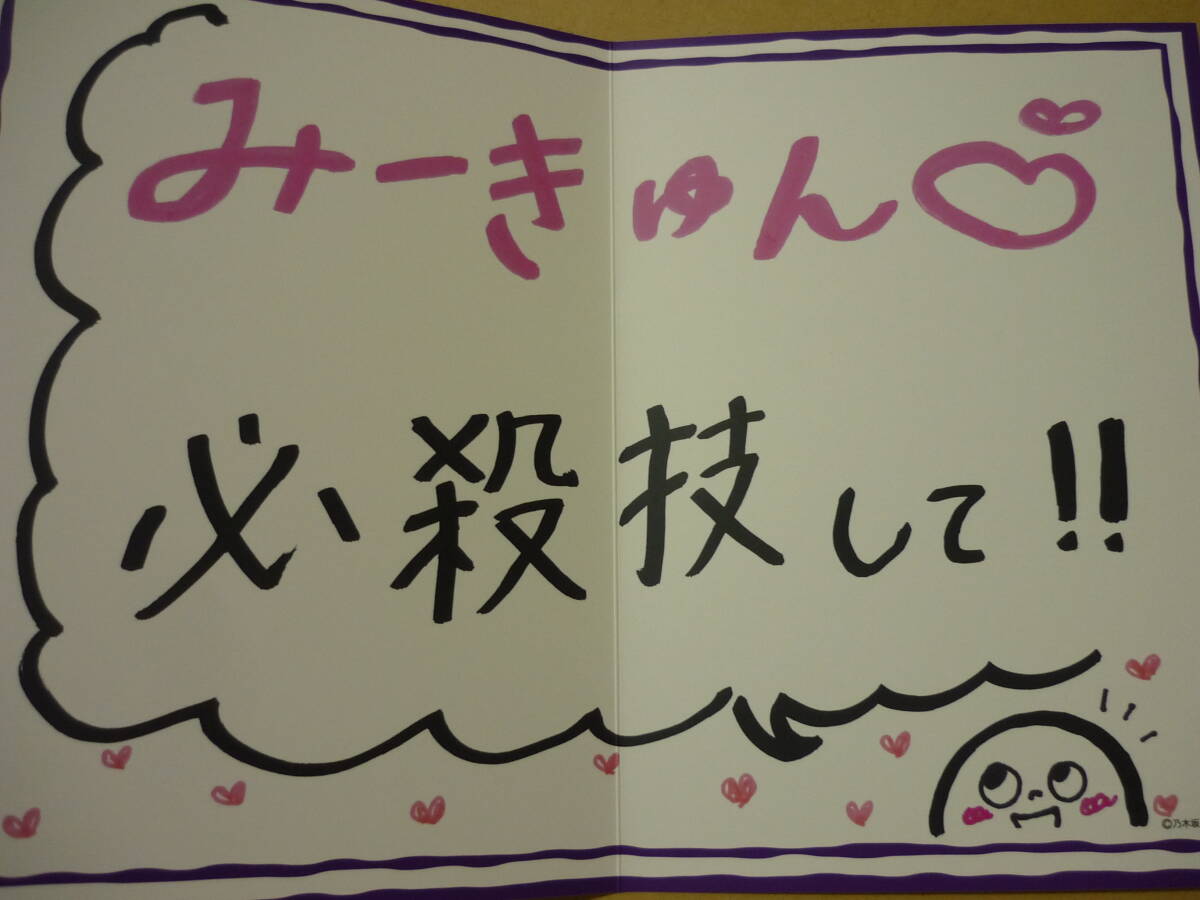 みーきゅん♡
必殺技して!!
©乃木坂